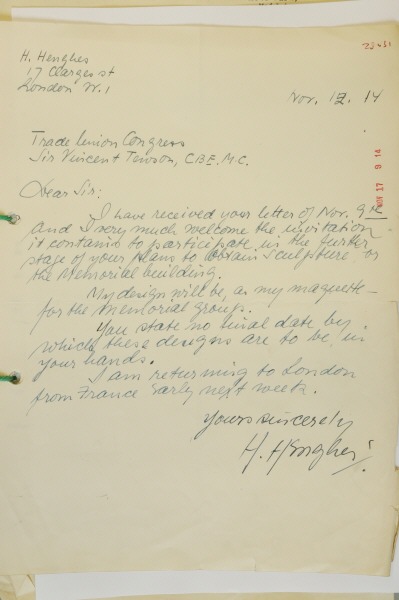 H. Henghes
17 Clarges st
London W.1
Nov. 12. 14
Trade Union Congress
Sir Vincent Tewson, C.B.E. M.C.
Dear Sir:
I have received your letter of Nov. 9th
and I very much welcome the invitation
it contains to participate in the further
stage of your plans to obtain sculpture for
the Memorial building.
My design will be, as my maquette –
for the memorial group.
You state no final date by
which these designs are to be in
your hands.
I am returning to London
from France Early next week.
Yours sincerely
H. Henghes
NOV 17 9 14